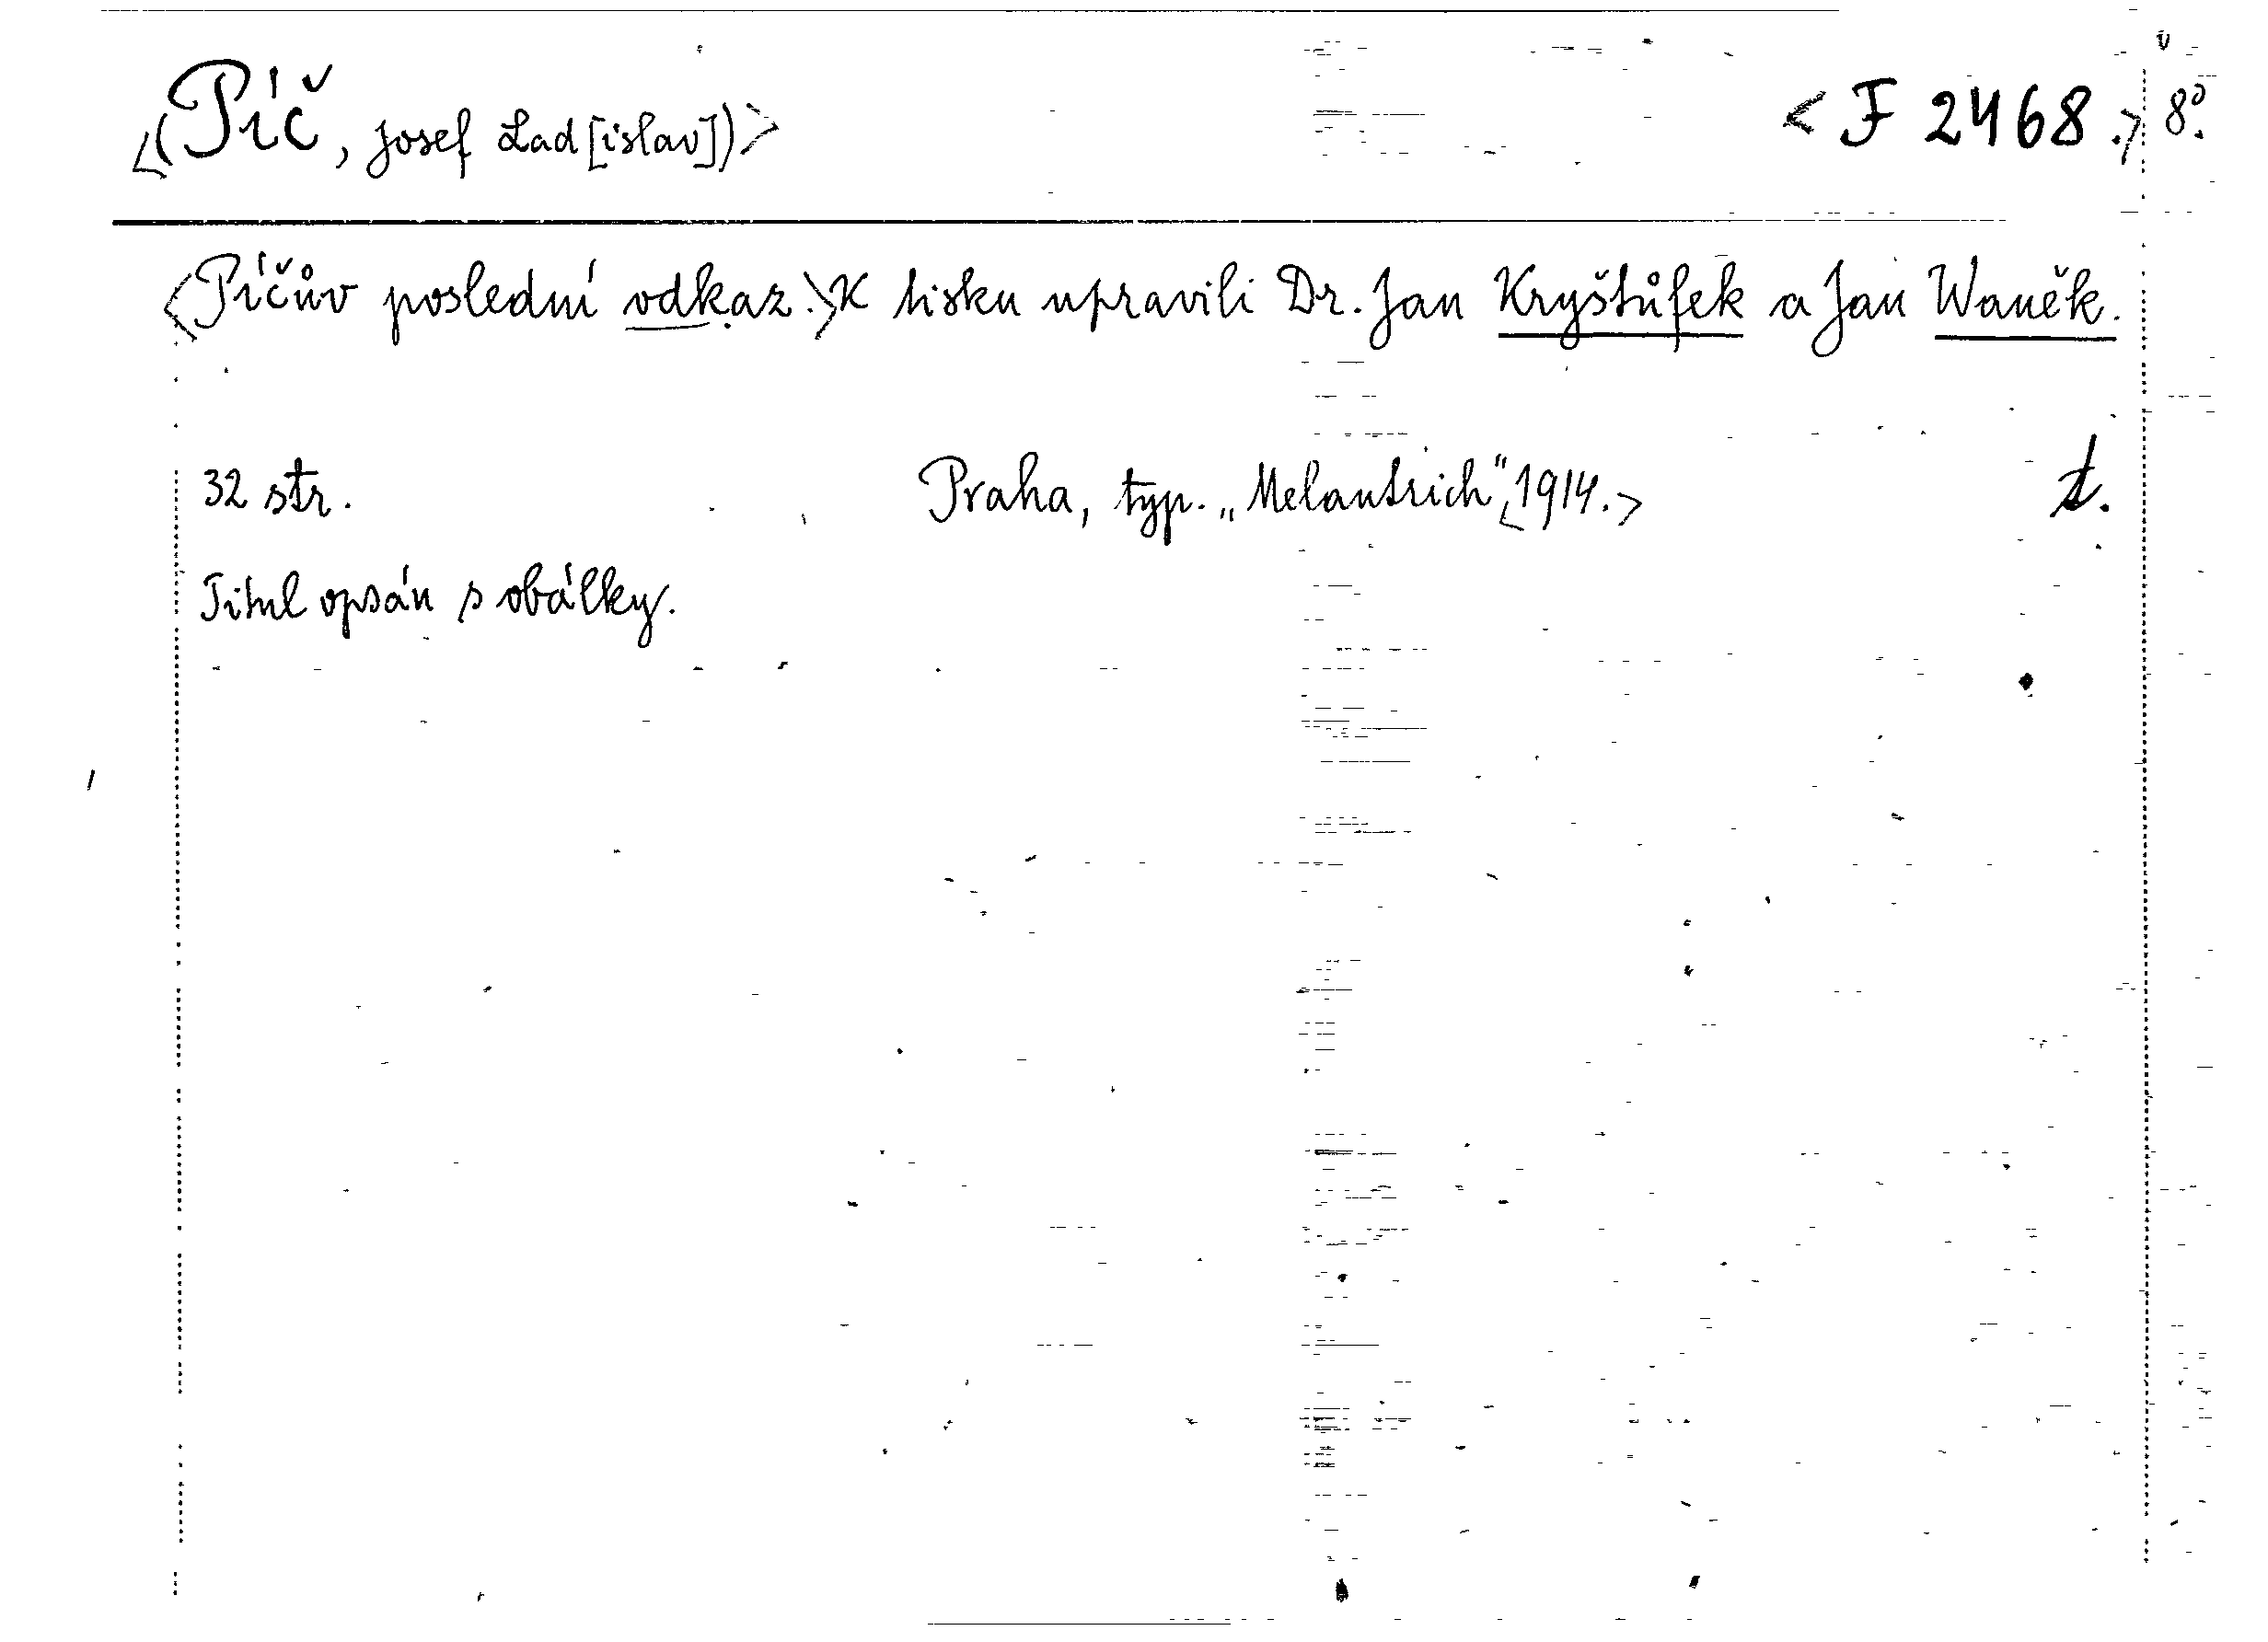 <(Píč, Josef Lad[islav])> <F 2468.> 8º.
<Píčův poslední odkaz.> K tisku upravili Dr. Jan Kryštůfek a Jan Waněk.
32 str. Praha, typ. „Melantrich“ <1914.> t.
Titul opsán s obálky.